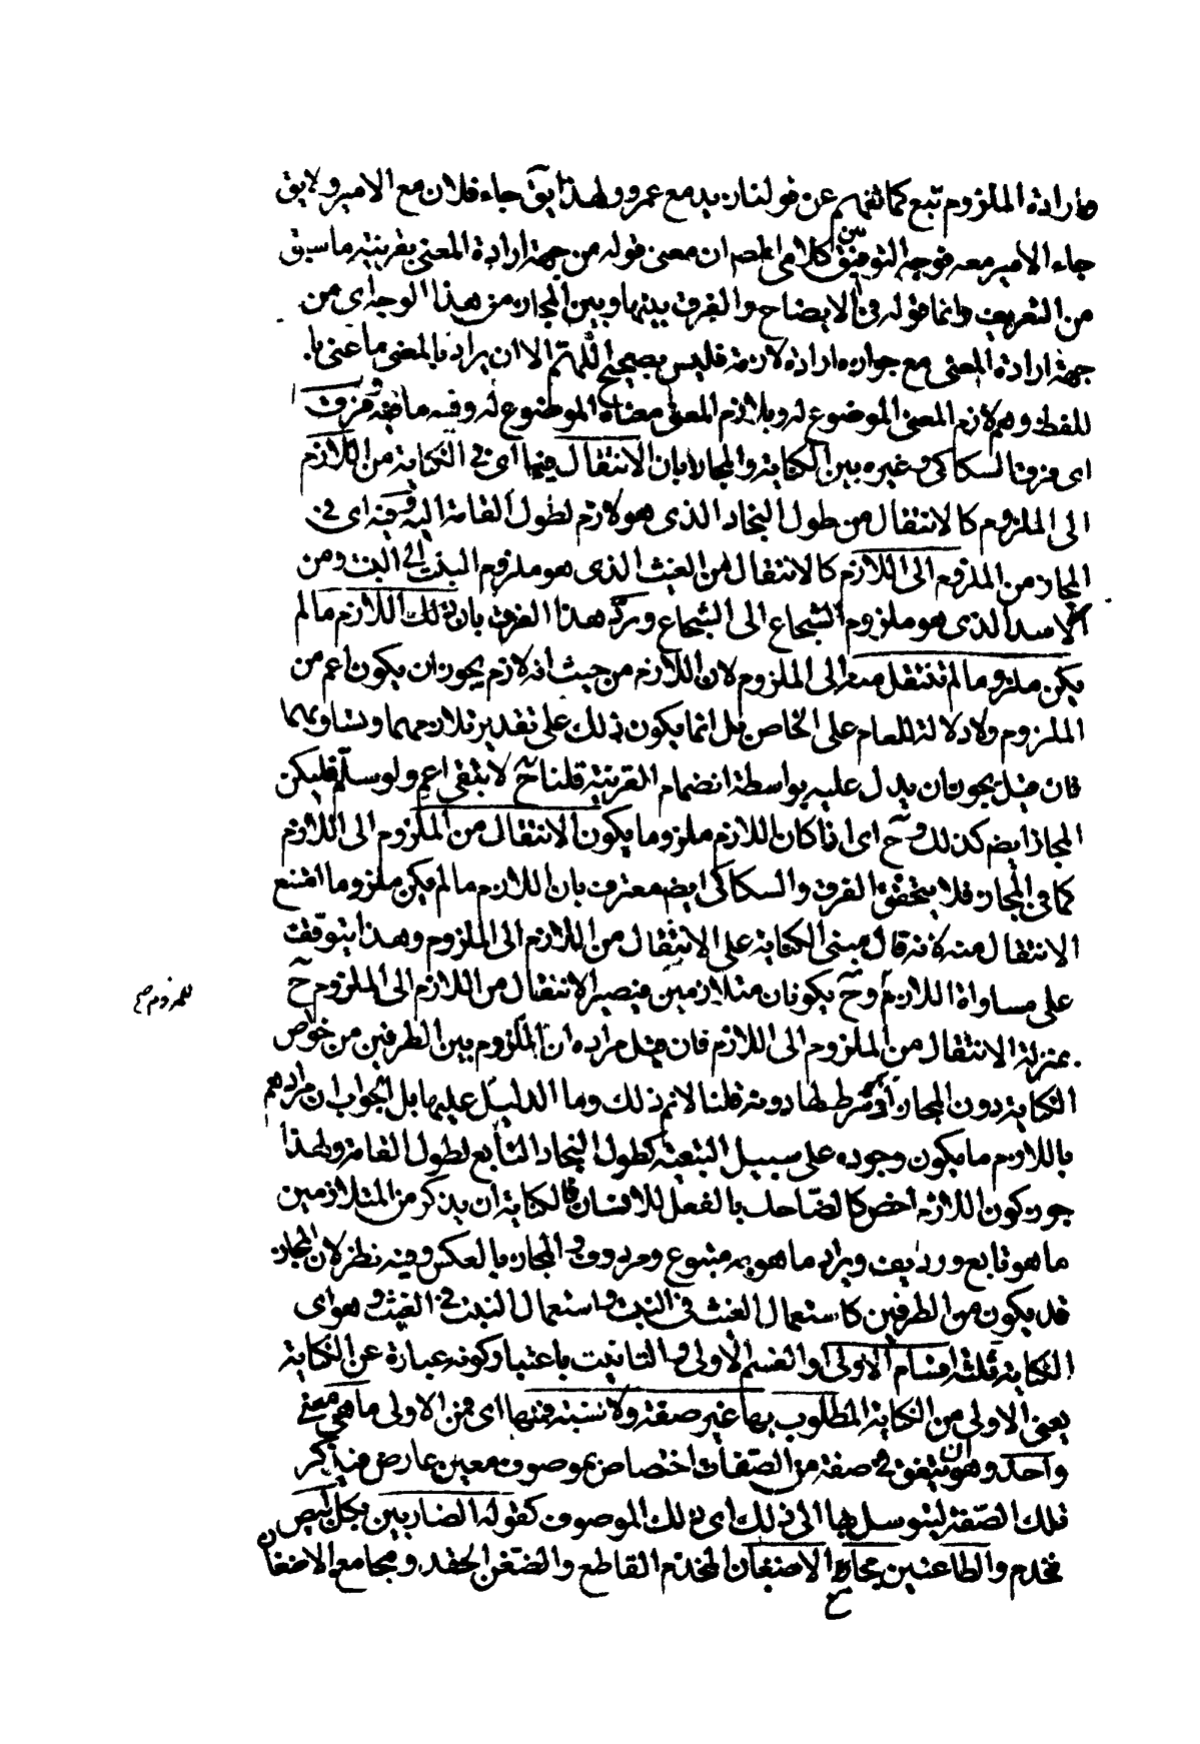 وارادة الملزوم تبع كما تفهم عن قولنا زيد مع عمرو ولهذا يق جاء فلان مع الامير ولا يق
جاء الامير معه فوجه التوفيق بين كلامي المصـ ان معنى قوله من جهة ارادة المعنى بقرينة ما سبق
من التعريف واما قوله في الايضاح والفرق بينها وبين المجاز من هذا الوجه اى من
جهة ارادة المعنى مع جواز ارادة لازمه فليس بصحيح اللهم الا ان يراد بالمعنى ما عنى با
للفظ وهو لازم المعنى الموضوع له وبلازم المعنى معناه الموضوع له وفيه ما فيه وفرق
اى فرق السكاكى وغيره بين الكناية والمجاز بان الانتقال فيها اى في الكناية من اللازم
الى الملزوم كالانتقال من طول النجاد الذى هو لازم لطول القامة اليه وفيه اى في
المجاز من الملزوم الى اللازم كالانتقال من الغيث الذى هو ملزوم النبت الى النبت ومن
الاسد الذى هو ملزوم الشجاع الى الشجاع ورد هذا الفرق بان ذلك اللازم ما لم
يكن ملزوما لم تنتقل منه الى الملزوم لان اللازم من حيث انه لازم يجوز ان يكون اعم من
الملزوم ولا دلالة للعام على الخاص بل انما يكون ذلك على تقدير تلازمهما وتساويهما
فان قيل يجوز ان يدل عليه بواسطة انضمام القرينة قلنا ح لا يبقى اعم ولو سلم فليكن
المجاز ايضـ كذلك وح اى اذا كان اللازم ملزوما يكون الانتقال من الملزوم الى اللازم
كما في المجاز فلا يتحقق الفرق والسكاكى ايضـ معترف بان اللازم ما لم يكن ملزوما امتنع
الانتقال منه لانه قال مبنى الكناية على الانتقال من اللازم الى الملزوم وهذا يتوقف
على مساواة اللازم وح يكونان متلازمين فيصير الانتقال من اللازم الى الملزوم ح
للملزوم صح
بمنزلة الانتقال من الملزوم الى اللازم فان قيل مراده ان اللزوم بين الطرفين من خواص
الكناية دون المجاز او شرط لها دونه قلنا لا نم ذلك وما الدليل عليها بل الجواب ان مرادهم
باللازم ما يكون وجوده على سبيل التبعية كطول النجاد التابع لطول القامة ولهذا
جوز كون اللازم اخص كالضاحك بالفعل للانسان فالكناية ان يذكر من المتلازمين
ما هو تابع ورديف ويراد ما هو به متبوع ومردوف والمجاز بالعكس وفيه نظر لان المجاز
قد يكون من الطرفين كاستعمال الغيث في النبت واستعمال النبت في الغيث وهو اى
الكناية ثلثة اقسام الاولى او القسم الاولى والتانيث باعتبار كونه عبارة عن الكناية
يعنى الاولى من الكناية المطلوب بها غير صفة ولا نسبة فمنها اى فمن الاولى ما هي معنى
واحد وهو ان يتفق في صفة من الصفات اختصاص بموصوف معين عارض فيذكر
تلك الصفة ليتوسل بها الى ذلك اى ذلك الموصوف كقوله الضاربين بكل ابيض
مخذم والطاعنين مجامع الاضغان المخذم القاطع والضغن الحقد ومجامع الاضغان